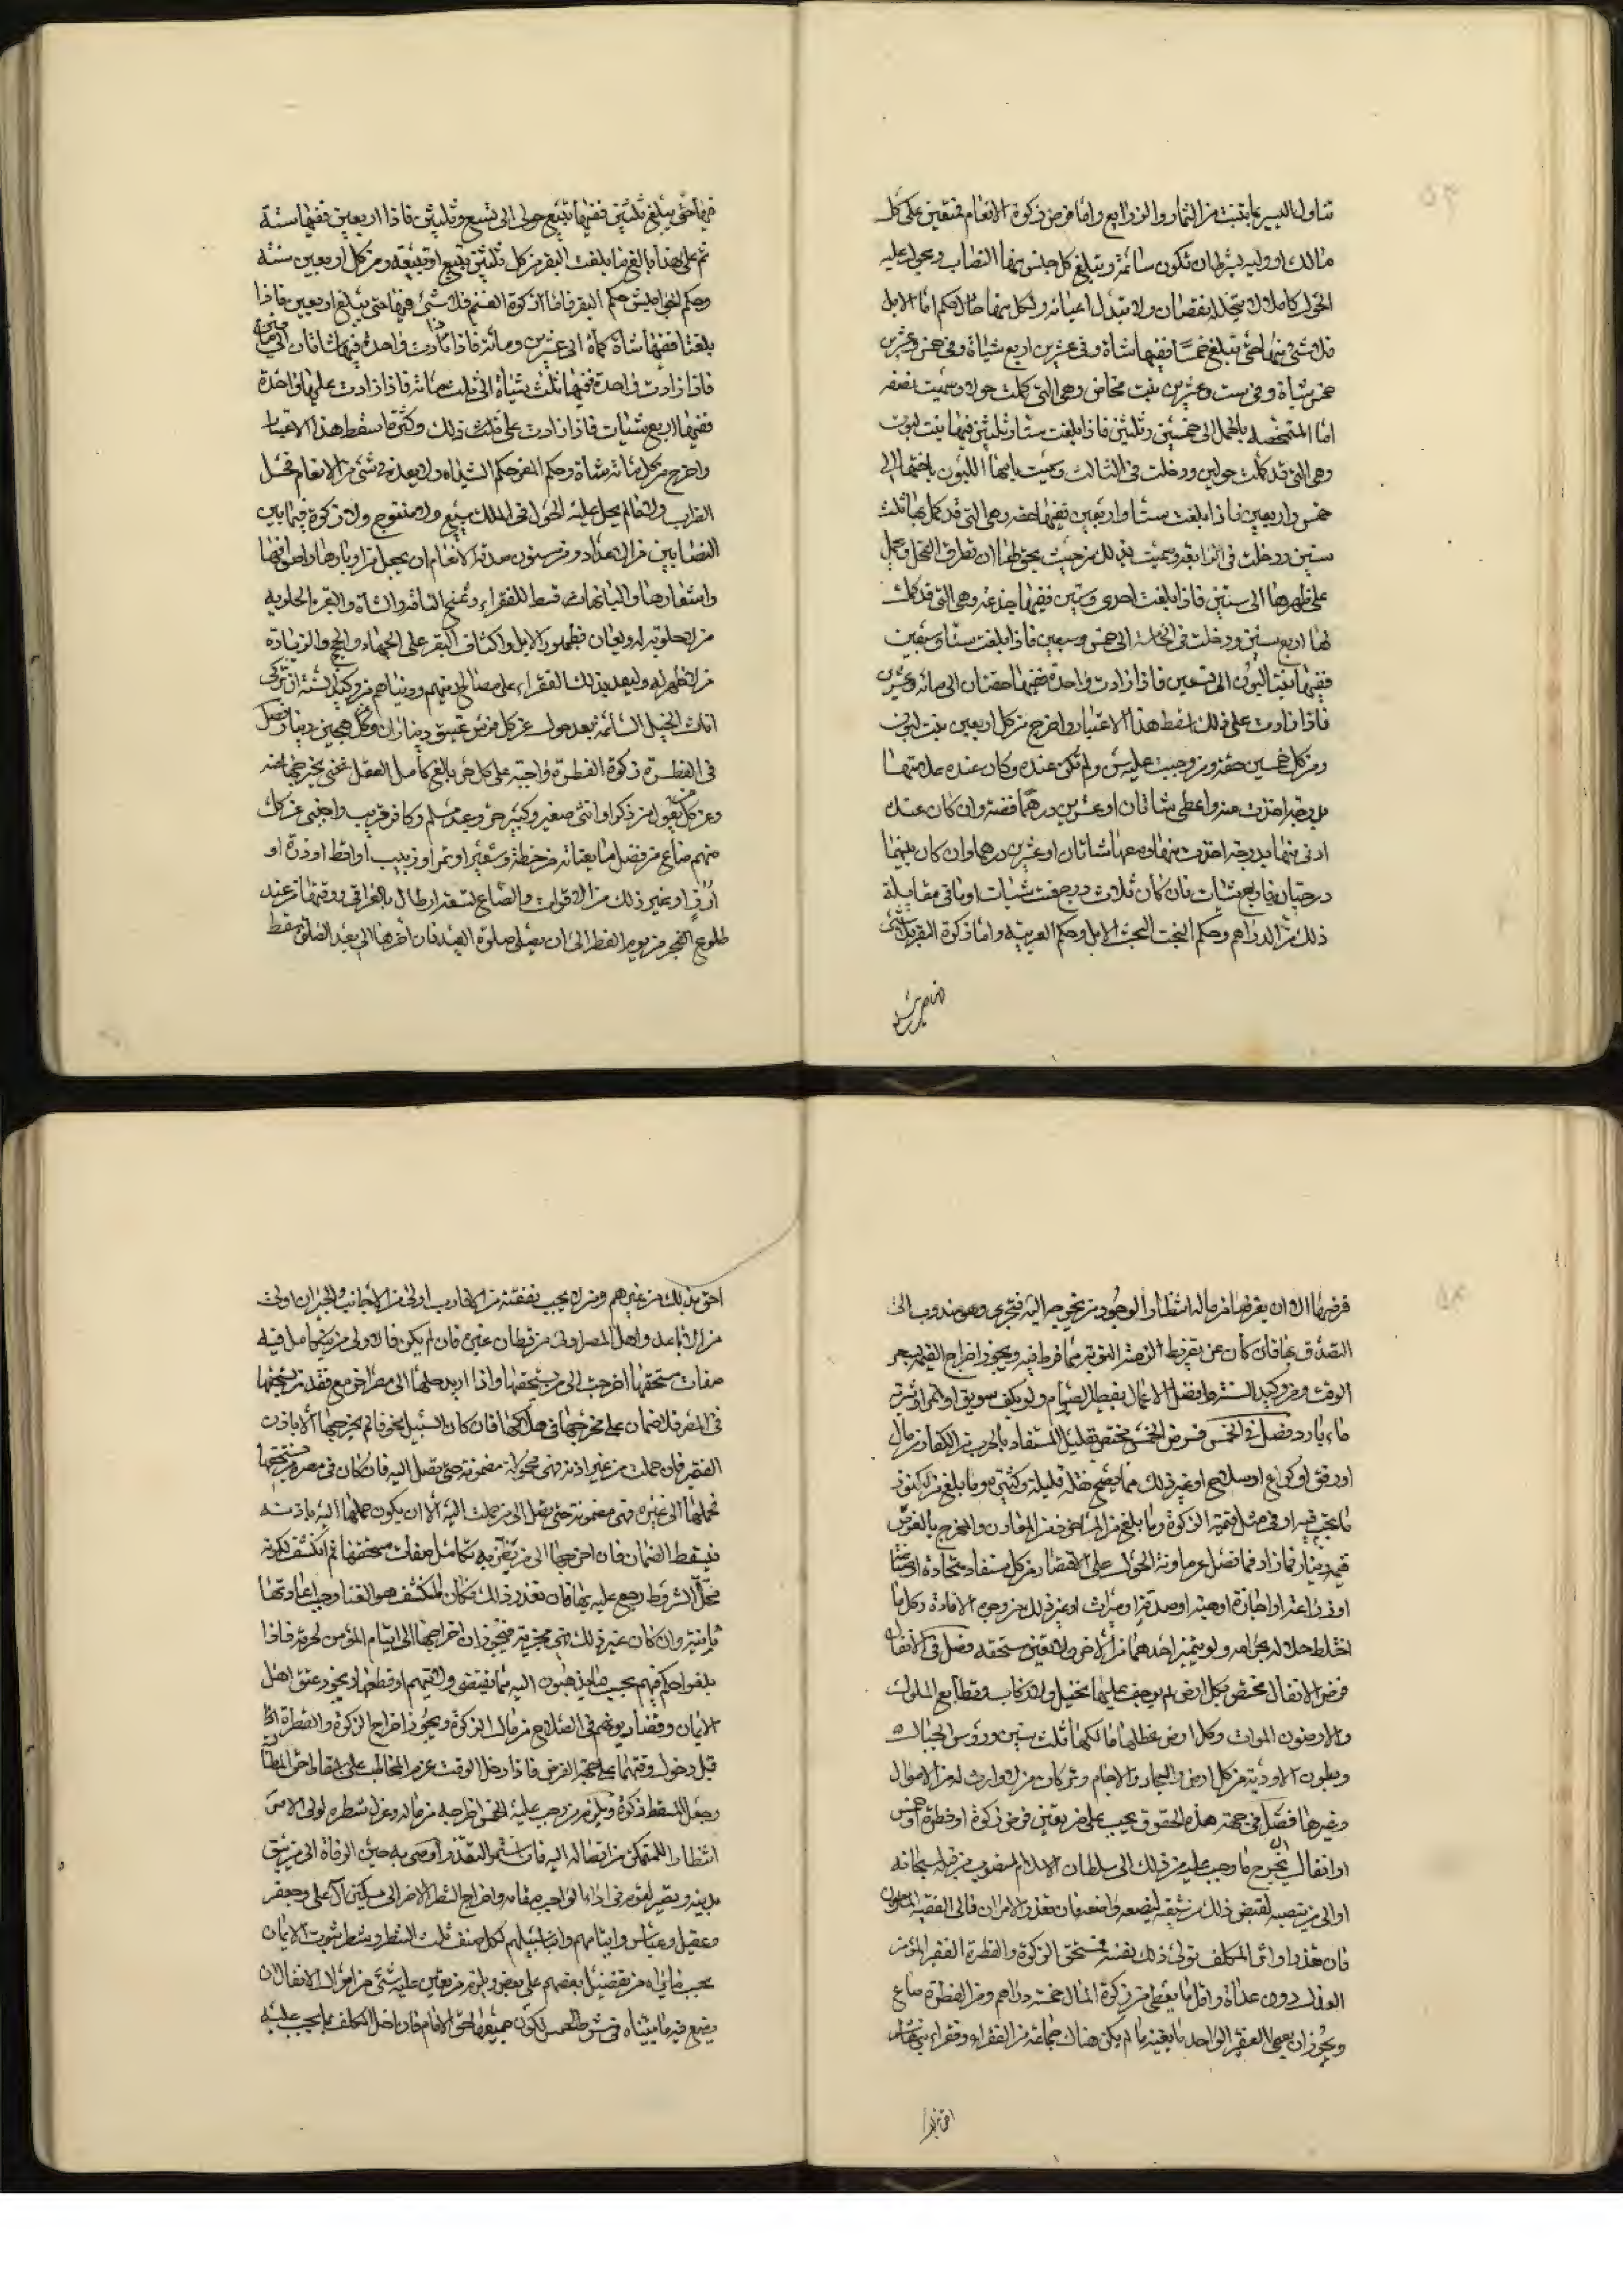 تناول اليسير مما ينبت من الثمار والزرايع واما فرض زكوة الانعام فمتعين على كل
مالك او وليه بشرط ان تكون سائمة ويبلغ كل جنس منها النصاب ويحول عليه
الحول كاملا لا يتخلله نقصان ولا تبدل اعيانه ولكل منها حال حكم اما الابل
فلا شئ فيها حتى تبلغ خمسا ففيها شاة وفى عشرين اربع شياة وفى خمس وعشرين
خمس شياة وفى ست وعشرين بنت مخاض وهى التى كملت حولا وسميت بصفه
امها المتمخضه بالحمل الى خمس وثلثين فاذا بلغت ستا وثلثين ففيها بنت لبون
وهى التى قد كملت حولين ودخلت فى الثالث وسميت بامها اللبون باختها الى
خمس واربعين فاذا بلغت ستا واربعين ففيها حقه وهى التى قد كمل لها ثلث
سنين ودخلت فى الرابعه وسميت بذلك من حيث يحق لها ان تطرق الفحل ويحمل
على ظهرها الى ستين فاذا بلغت احدى وستين ففيها جذعه وهى التى قد كملت
لها اربع سنين ودخلت فى الخامسة الى خمس وسبعين فاذا بلغت ستا وسبعين
ففيها بنتا لبون الى تسعين فاذا زادت واحدة ففيها حقتان الى مائه وعشرين
فاذا زادت على ذلك سقط هذا الاعتبار واخرج من كل اربعين بنت لبون
ومن كل خمسين حقه ومن وجبت عليه سن ولم تكن عنده وكان عنده اعلا منها
بدرجة اخذت منه واعطى شاتان او عشرين درهما فضة وان كان عنده
ادنى منها بدرجة اخذت منه ومعها شاتان او عشرين درهما وان كان بينهما
درجتان فاربع شياة فان كان ثلاث درج فست شياة او ما فى مقابلة
ذلك من الدراهم وحكم البخت البخت الابل وحكم العربية واما زكوة البقر فلا شئ
فيها حتى يبلغ ثلثين ففيها تبيع حولى الى تسع وثلثين فاذا اربعين ففيها مسنة
ثم على هذا بالغ ما بلغت البقر من كل ثلثين تبيع او تبيعة ومن كل اربعين مسنة
وحكم الجواميس حكم البقر فاما زكوة الغنم فلا شئ فيها حتى يبلغ اربعين فاذا
بلغتها ففيها شاة كماة الى عشرين ومائة فاذا زادت واحدة ففيها شاتان الى مائتين
فاذا زادت واحدة ففيها ثلث شياة الى ثلث مائة فاذا زادت عليها واحدة
ففيها اربع شياة فاذا زادت على ذلك وكثرت سقط هذا الاعتبار
واخرج من كل مائة شاة وحكم المعز حكم الشياه ولا يعد فى شئ من الانعام فحل
الضراب ولا ما لم يحل عليه الحول فى الملك بيع ولا منتوج ولا زكوة فيما بين
النصابين من الاعداد ومن مسنون صدقة الانعام ان يجعل من اوبارها واصوافها
واشعارها والبانها قسط للفقراء ويمنح الناقة والشاة والبقرة الحلوبه
من لا حلوبة له ويعان بظهور الابل واكتاف البقر على الجهاد والحج والزيادة
من لا ظهر له وليعد بذلك الفقراء على مصالح دينهم ودنياهم ومن وكيد السنة ان تزكى
اناث الخيل السائمه بعد حول عن كل فرس عتيق ديناران وكل هجين دينار فصل
فى الفطرة زكوة الفطرة واجبه على كل حر بالغ كامل العقل غنى يخرجها عنه
وعن كل من يعول من ذكر او انثى صغير وكبير حر وعبد مسلم وكافر قريب واجنبى عن كل
منهم صاع من فضل ما يقتاته من حنطة وشعير او تمر او زبيب او اقط او ذرة او
ارز او غير ذلك من الاقوات والصاع تسعة ارطال بالعراقى ووقتها من عند
طلوع الفجر من يوم الفطر الى ان يصلى صلوة العيد فان اخرها الى بعد الصلوة سقط
فرضها الا ان يفرضها من ماله انتظارا لوجود من يخرجه اليه فتجزى وهو مندوب الى
التصدق بها فان كان عن تفريط لزمته التوبة مما فرط فيه ويجوز اخراج القيمه بسعر
الوقت ومن وكيد السنه وافضل الاعمال تفطير الصوام ولو بكف سويق او تمر او شربة
ماء بارد فصل فى الخمس فرض الخمس مختص بقليل المستفاد بالحرب من الكفار من مال
او رقيق او كراع او سلاح او غير ذلك مما يصح نقله قليله وكثيره وما بلغ من الكنوز
ما يجب فيه او فى مثل قيمته الزكوة وما بلغ من المأخوذ من المعادن والمخرج بالغوص
قيمة دينار فما زاد فما فضل عن مؤونة الحول على الاقتصاد من كل مستفاد بتجارة او صناعة
او زراعة او اجارة او هبة او صدقة او ميراث او غير ذلك من وجوه الافادة وكل ما
اختلط حلاله بحرامه ولم يتميز احدهما من الاخر ولا تعين مستحقه فصل فى الانفال
فرض الانفال مختص بكل ارض لم يوجف عليها بخيل ولا ركاب وقطايع الملوك
والارضون الموات وكل ارض عطلها مالكها ثلث سنين ورؤس الجبال
وبطون الاودية من كل ارض والبحار والاجام وتركات من لا وارث له من الاموال
وغيرها فصل فى جهة هذه الحقوق يجب على من تعين فرض زكوة او فطرة او خمس
او انفال ان يخرج ما وجب عليه من ذلك الى سلطان الاسلام المنصوب من قبله سبحانه
او الى من ينصبه لقبض ذلك من شيعته ليضعه مواضعه فان تعذر الامران فالى الفقيه المأمون
فان تعذر او اثر المكلف تولى ذلك بنفسه فمستحق الزكوة والفطرة الفقير المؤمن
العدل دون عداه واقل ما يعطى من زكوة المال خمسة دراهم ومن الفطرة صاع
ويجوز ان يعطى الفقير الواحد ما يغنيه ما لم يكن هناك جماعة من الفقراء وفقراء بنى هاشم
احق بذلك من غيرهم ومن لا يجب نفقته من الاقارب اولى من الاجانب والجيران اولى
من الاباعد واهل المصر اولى من قطان غيره فان لم يكن فالاولى من يتكامل فيه
صفات مستحقها اخرجت الى من يستحقها واذا اريد حملها الى مصر اخر مع فقد مستحقها
فى المصر فلا ضمان على مخرجها فى هلاكها فان كان السبيل مخوفا لم يخرجها الا باذن
الفقير فان حملت من غير اذنه فهى محمولة مضمونة حتى تصل اليه فان كان فى مصره مستحقها
فحملها الى غيره فهى مضمونة حتى يصل الى من حملت اليه الا ان يكون حملها اليه باذنه
فيسقط الضمان فان اخرجها الى من يظن به تكامل صفات مستحقها ثم انكشف كونه
مخلّ الشروط رجع عليه بها فان تعذر ذلك وكان المنكشف هو الغنا وجب اعادتها
ثانية وان كان غير ذلك فهى مجزية فيجوز ان اخراجها الى ايتام المؤمن لحرمته فاذا
بلغوا حكم فيهم بحسب ما يذهبون اليه مما يقتضى ولايتهم او قطعها ويجوز عتق اهل
الايمان وقضاء ديونهم فى الصلاح من مال الزكوة ويجوز اخراج الزكوة والفطرة
قبل دخول وقتهما على جهة القرض فاذا دخل الوقت عزم المخاطب على اسقاط حق المطالبة
وجعل المسقط زكوة ويلزم من وجب عليه الخمس اخراجه من ماله وعزل شطره لولى الامر
انتظارا للتمكن من ايصاله اليه فان استمر التعذر اوصى به حين الوفاة الى من يثق
بدينه وبصيرته ليقوم فى اداء الواجب مقامه واخراج الشطر الاخر الى مساكين آل على وجعفر
وعقيل وعباس وايتامهم وابناء سبيلهم لكل صنف ثلث الشطر وبشرط ثبوت الايمان
بحسب ما يراه من تفضيل بعضهم على بعض ويلزم من تعين عليه شئ من اموال الانفال ان
يصنع فيه ما بيناه فى شرط الخمس لكون جميعها حق الامام فان اخل المكلف بما يجب عليه